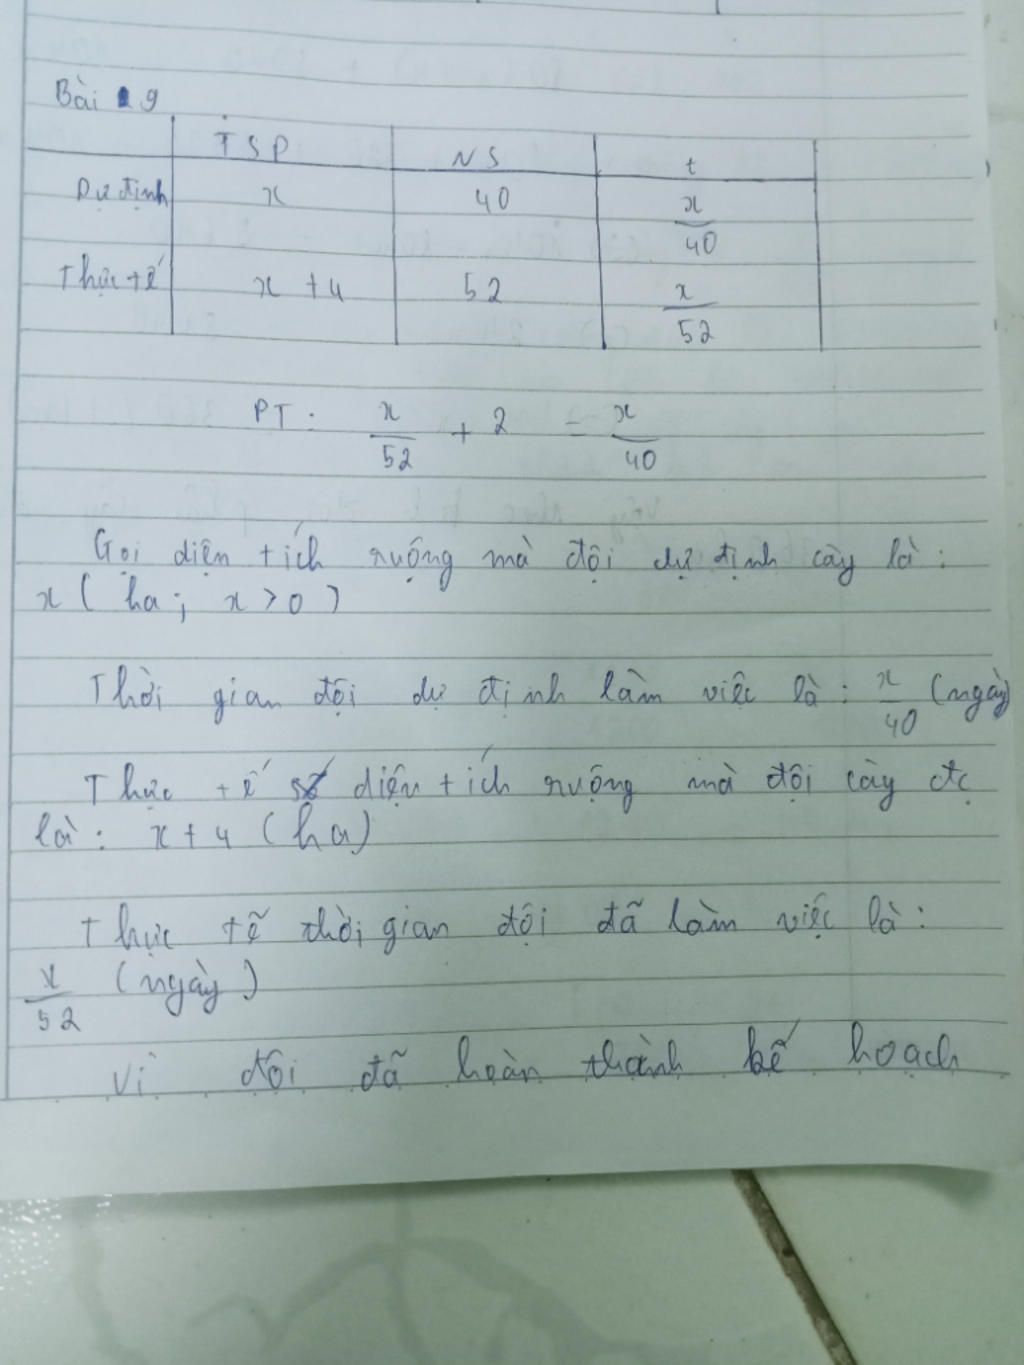 Bài 9
TSP NS t
Dự định x 40 x/40
Thực tế x + 4 52 x/52
PT: x/52 + 2 = x/40
Gọi diện tích ruộng mà đội dự định cày là:
x ( ha; x > 0 )
Thời gian đội dự định làm việc là: x/40 (ngày)
Thực tế diện tích ruộng mà đội cày đc
là: x + 4 (ha)
Thực tế thời gian đội đã làm việc là:
x/52 (ngày)
Vì đội đã hoàn thành kế hoạch